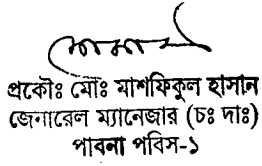 প্রকৌঃ মোঃ মাশফিকুল হাসান
জেনারেল ম্যানেজার (চঃ দাঃ)
পাবনা পবিস-১